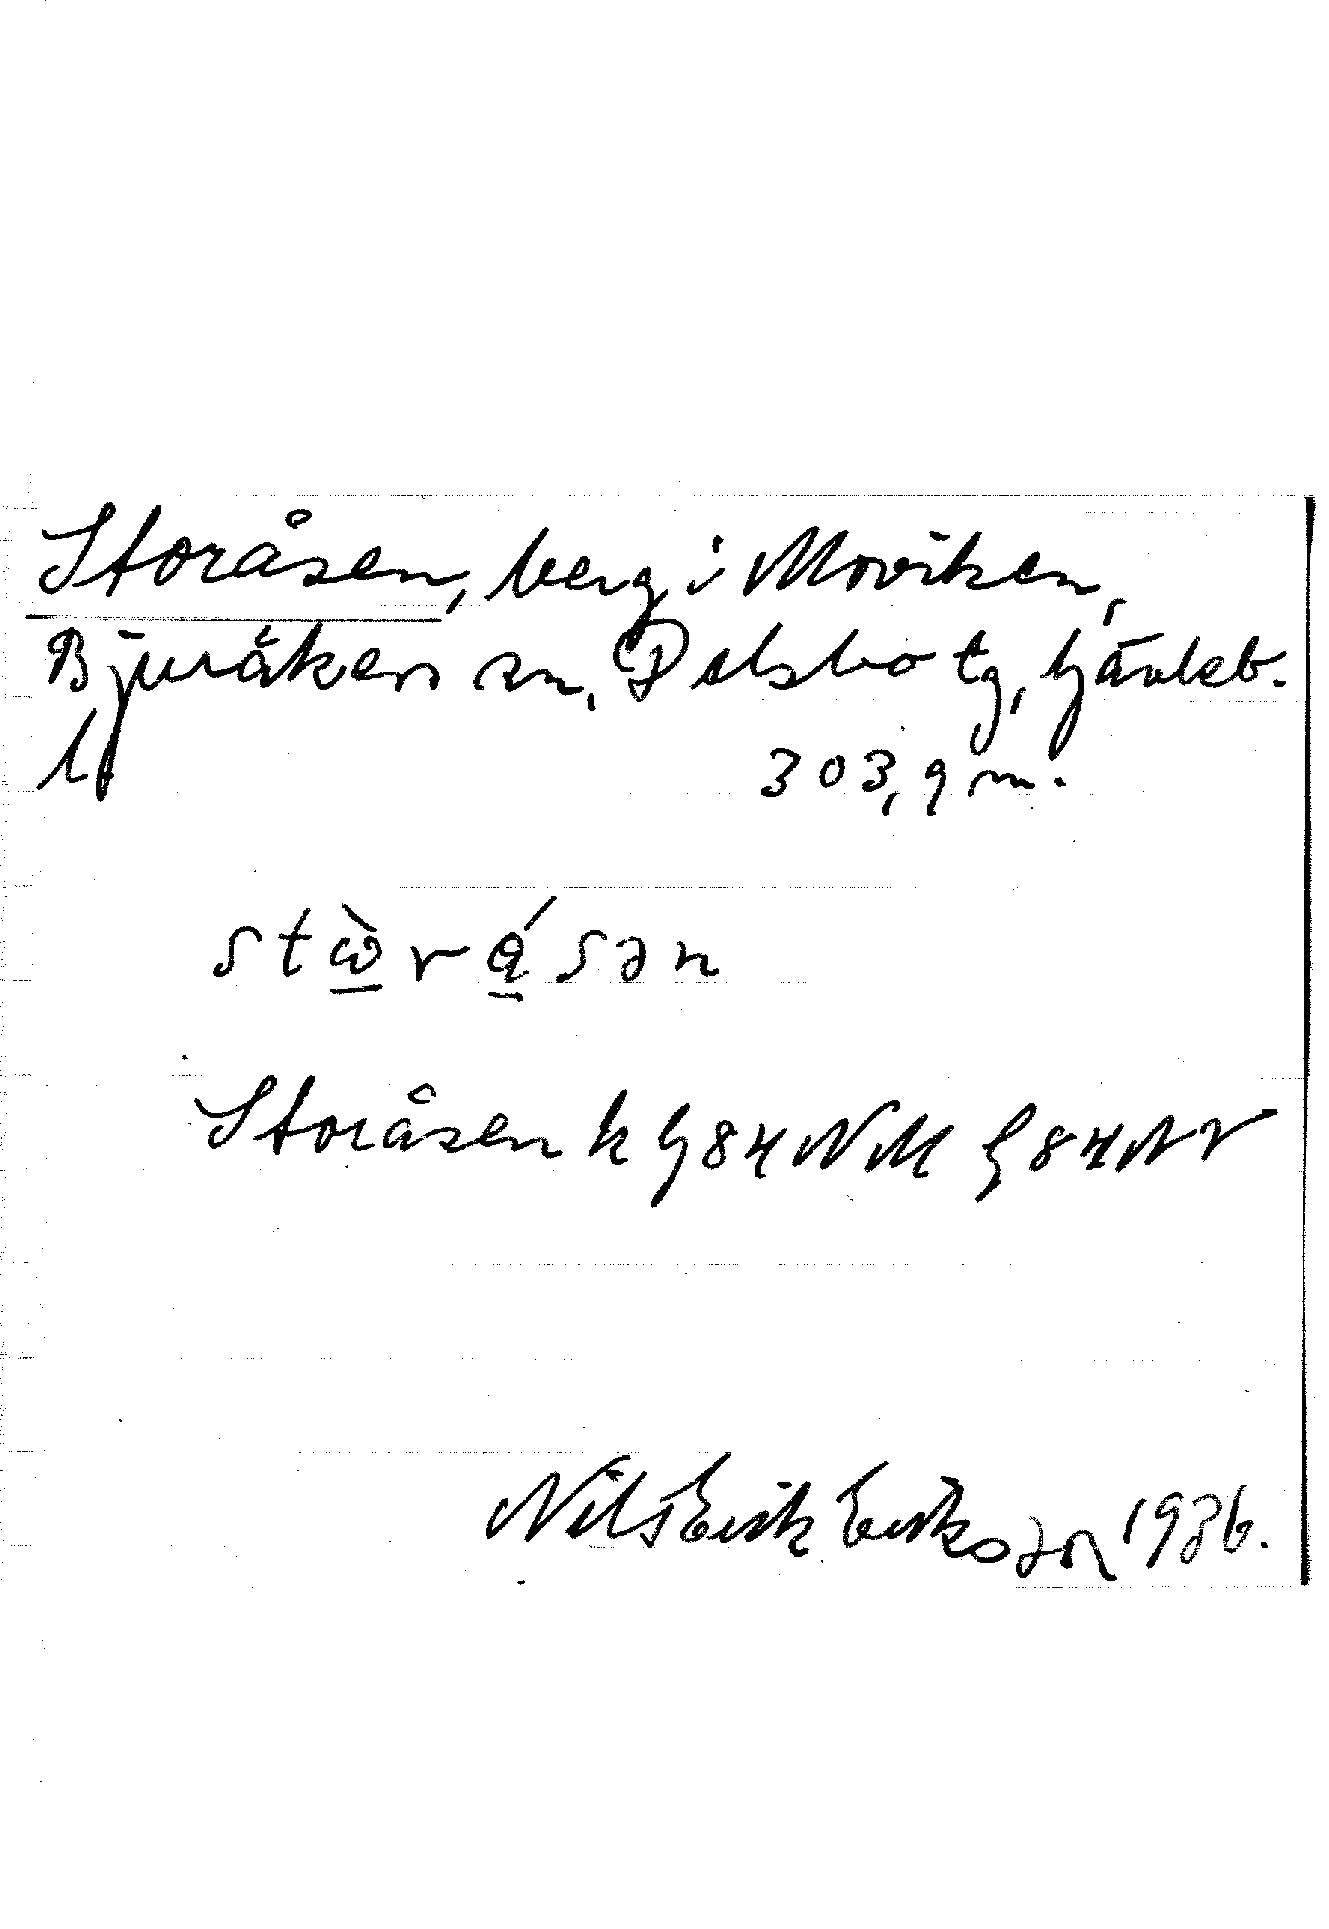 Storåsen, berg i Moviken,
Bjuråkers sn, Delsbo tg, Gävleb.
l 303,9 m.
stὼ̲rǻ̲sən
Storåsen k G84NM G84NV
Nils Erik Eriksson 1936.